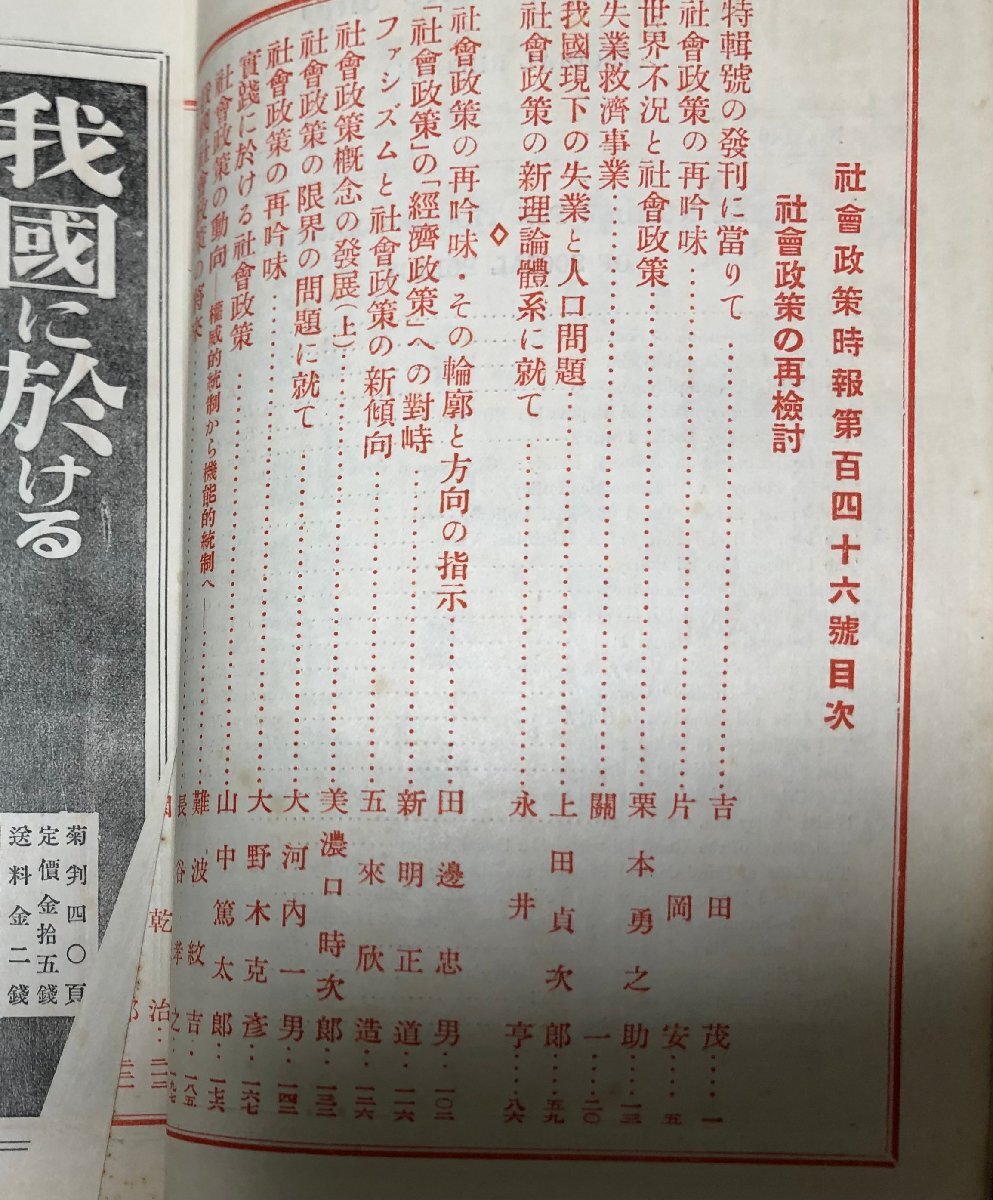 社會政策時報第百四十六號目次
社會政策の再檢討
特輯號の發刊に當りて……吉田茂……一
社會政策の再吟味……片岡安……五
世界不況と社會政策……栗本勇之助……一三
失業救濟事業……關一……二〇
我國現下の失業と人口問題……上田貞次郎……五九
社會政策の新理論體系に就て……永井亨……八六
◇
社會政策の再吟味・その輪廓と方向の指示……田邊忠男……一〇二
「社會政策」の「經濟政策」への對峙……新明正道……一一六
ファシズムと社會政策の新傾向……五來欣造……一二六
社會政策概念の發展(上)……美濃口時次郎……一三二
社會政策の限界の問題に就て……大河內一男……一四二
社會政策の再吟味……大野木克彥……一六七
實踐に於ける社會政策……山中篤太郎……一七六
社會政策の動向―權威的統制から機能的統制へ―……難波紋吉……一八五
長谷孝之……一九七
乾治……二一二
我國に於ける
菊判四〇頁
定價金拾五錢
送料金二錢